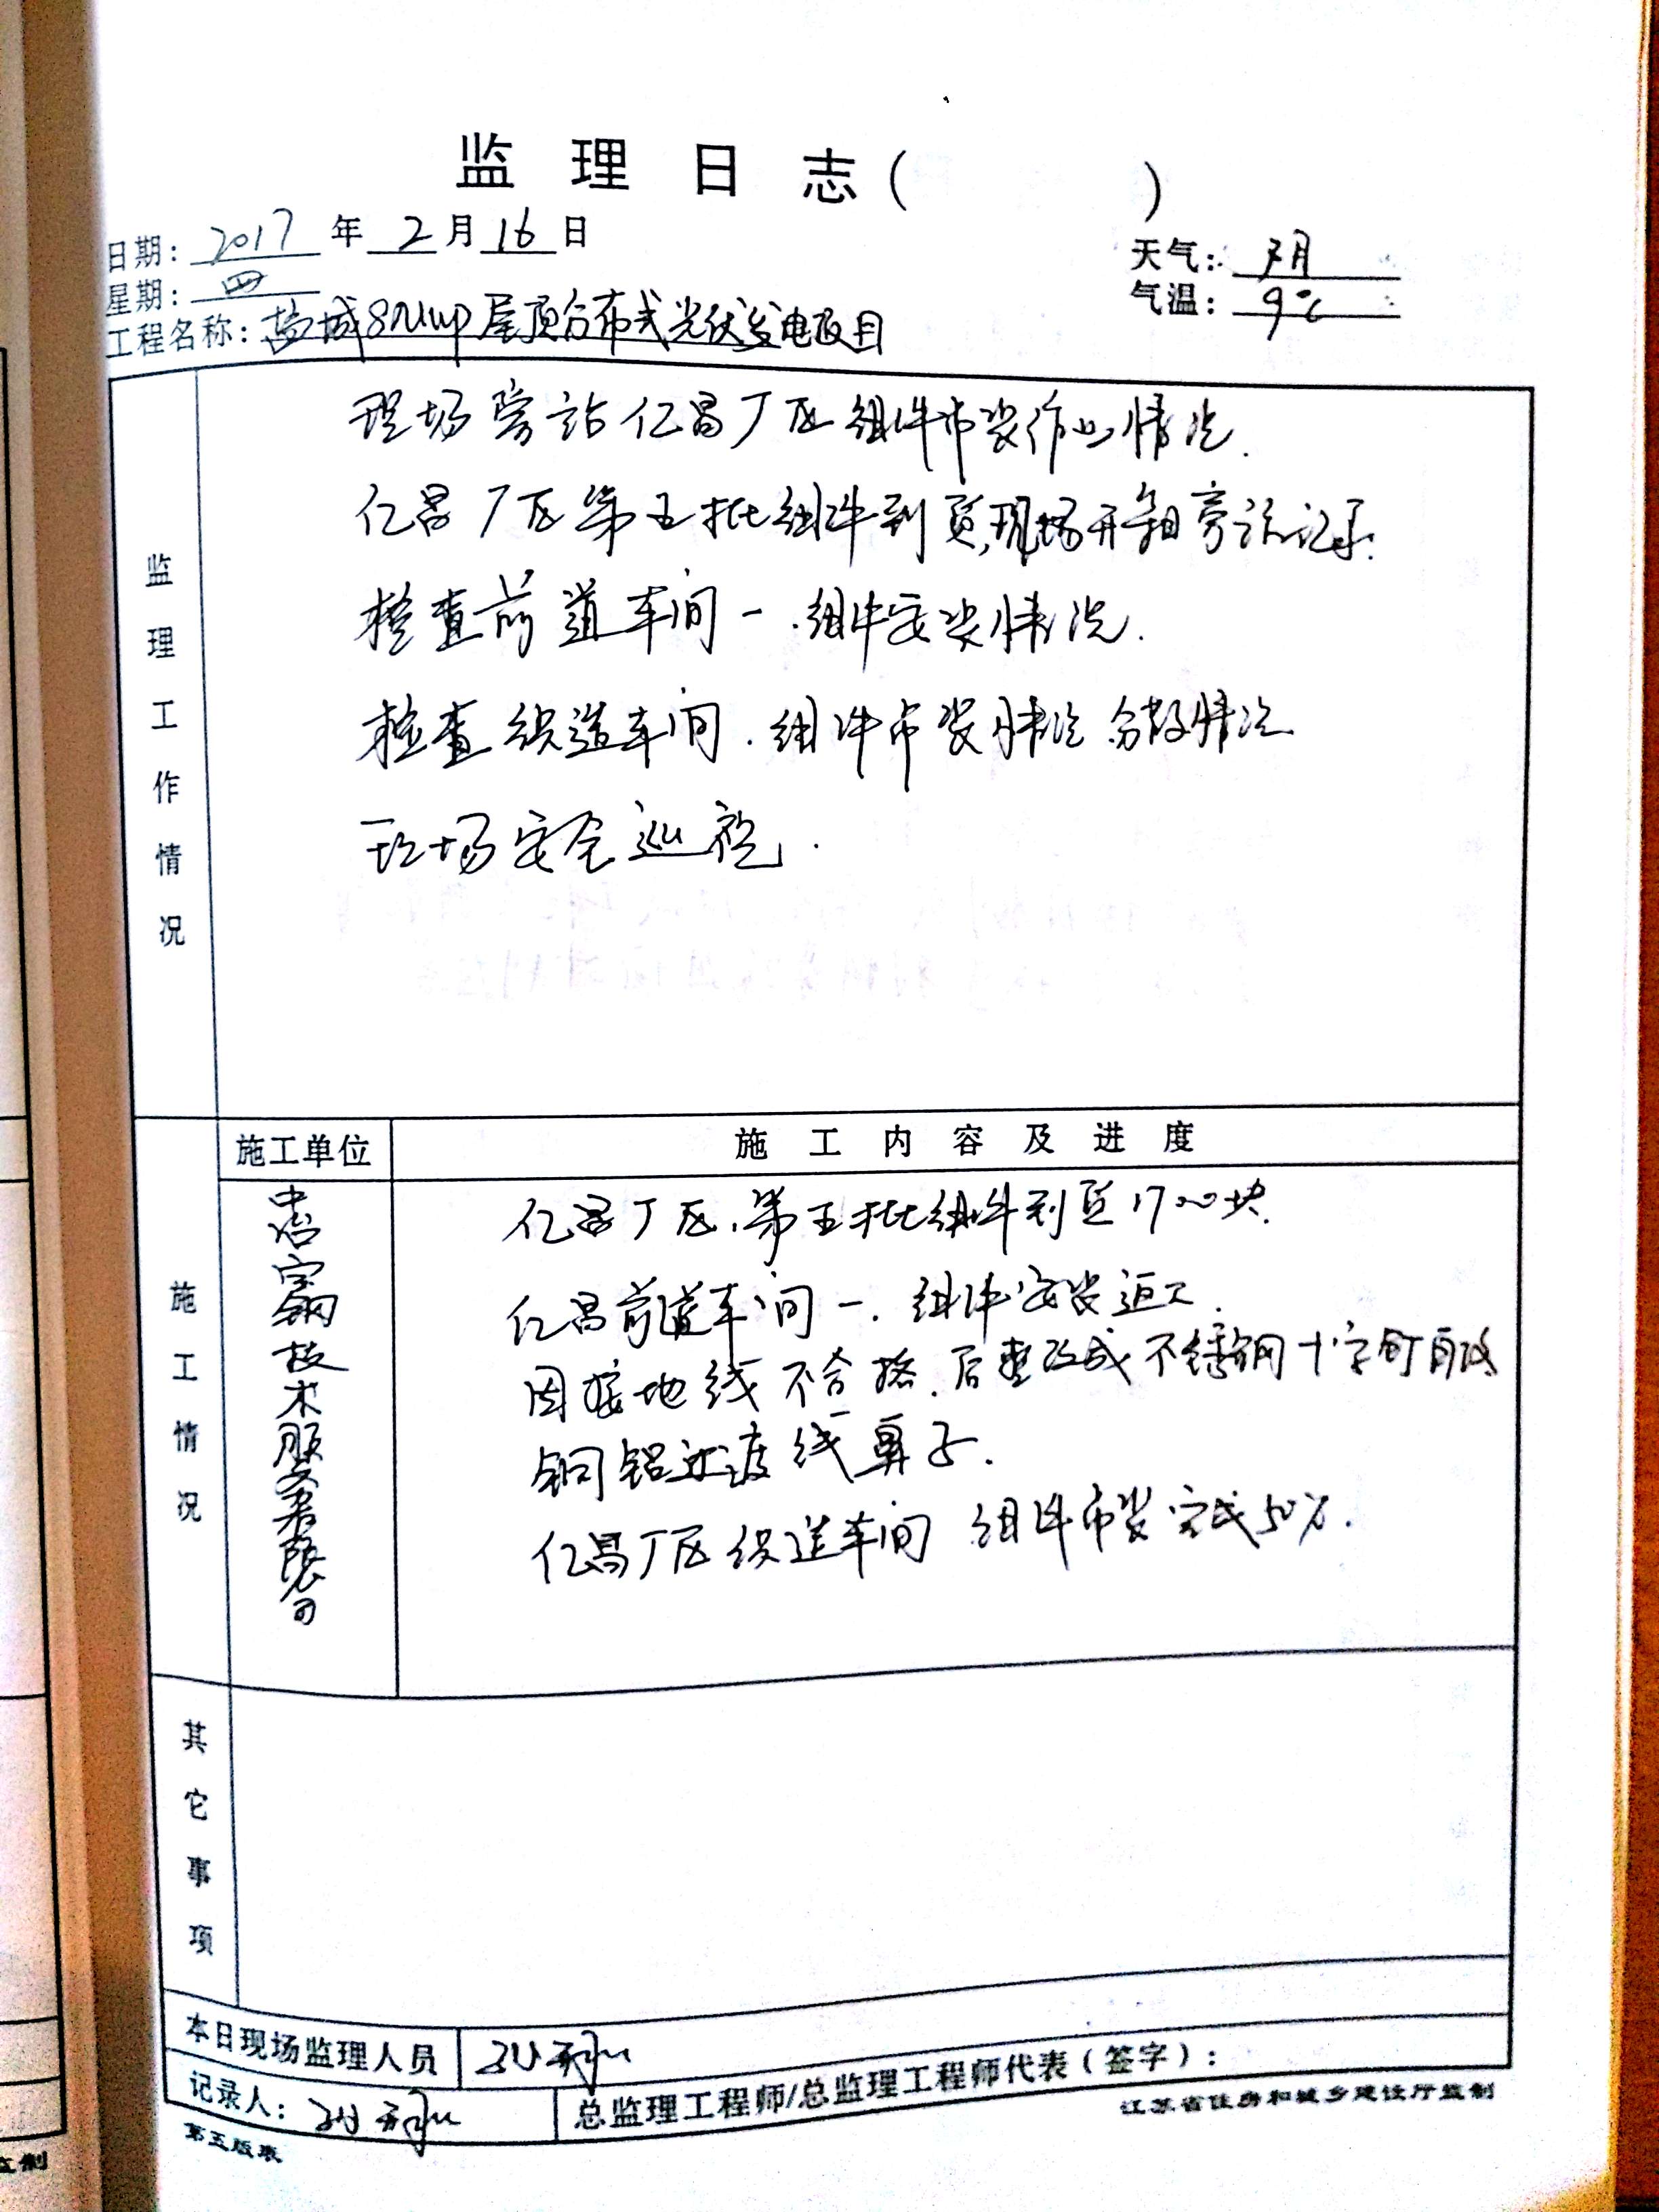 监理日志( )
日期: 2017 年 2 月 16 日
天气: 阴
星期: 四
气温: 9℃
工程名称: 盐城8MWP屋顶分布式光伏发电项目
监理工作情况
现场旁站亿昌厂区组件吊装作业情况.
亿昌厂区第五批组件到货,现场开箱旁站记录.
检查前道车间一.组件安装情况.
检查织造车间.组件吊装情况 分散情况
现场安全巡视.
施工情况
施工单位
施工内容及进度
中冶宝钢技术服务有限公司
亿昌厂区.第五批组件到货1700块.
亿昌前道车间一.组件安装返工.
因接地线不合格.后整改成不锈钢十字钉
铜铝过渡线鼻子.
亿昌厂区织造车间 组件吊装完成50%.
其它事项
本日现场监理人员
记录人:
总监理工程师/总监理工程师代表(签字):
第五版表
江苏省住房和城乡建设厅监制
监制